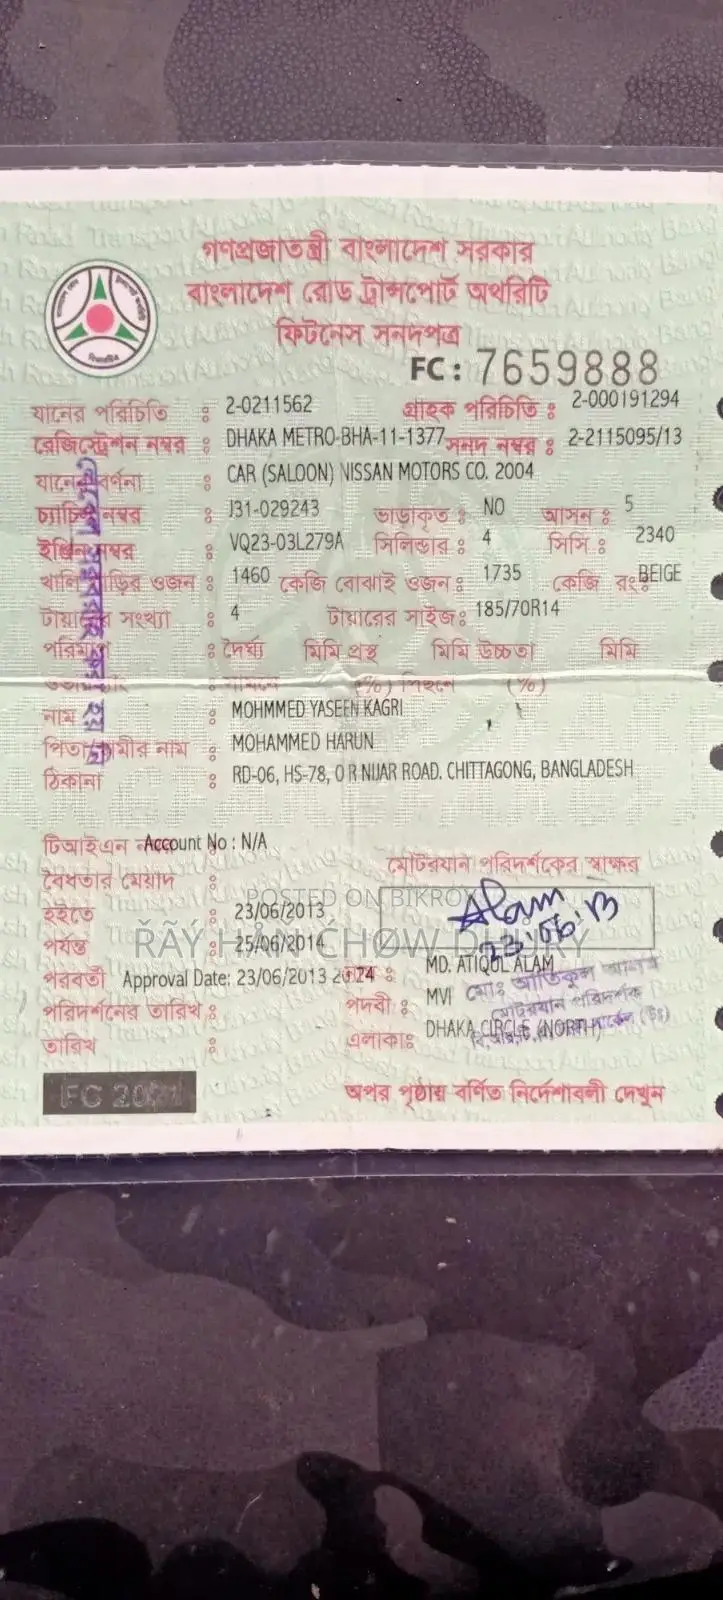 গণপ্রজাতন্ত্রী বাংলাদেশ সরকার
বাংলাদেশ রোড ট্রান্সপোর্ট অথরিটি
ফিটনেস সনদপত্র
FC : 7659888
যানের পরিচিতি : 2-0211562 গ্রাহক পরিচিতি : 2-000191294
রেজিস্ট্রেশন নম্বর : DHAKA METRO-BHA-11-1377 সনদ নম্বর : 2-2115095/13
যানের বর্ণনা : CAR (SALOON) NISSAN MOTORS CO. 2004
চ্যাচিস নম্বর : J31-029243 ভাড়াকৃত : NO আসন : 5
ইঞ্জিন নম্বর : VQ23-03L279A সিলিন্ডার : 4 সিসি : 2340
খালি গাড়ির ওজন : 1460 কেজি বোঝাই ওজন : 1735 কেজি রং : BEIGE
টায়ারের সংখ্যা : 4 টায়ারের সাইজ : 185/70R14
পরিমাপ : দৈর্ঘ্য মিমি প্রস্থ মিমি উচ্চতা মিমি
(%) পিছনে (%)
নাম : MOHMMED YASEEN KAGRI
পিতা/স্বামীর নাম : MOHAMMED HARUN
ঠিকানা : RD-06, HS-78, O R NIJAR ROAD. CHITTAGONG, BANGLADESH
টিআইএন Account No : N/A
বৈধতার মেয়াদ : মোটরযান পরিদর্শকের স্বাক্ষর
POSTED ON BIKROY
হইতে : 23/06/2013 Alam
23.06.13
পর্যন্ত : 25/06/2014
ŘÃÝ HÅN ĆHØW DHURY
পরবর্তী Approval Date: 23/06/2013 20:24 নাম : MD. ATIQUL ALAM
পরিদর্শনের তারিখ : পদবী : MVI মোঃ আতিকুল আলম
মোটরযান পরিদর্শক
তারিখ : এলাকা : DHAKA CIRCLE (NORTH)
FC 2021
অপর পৃষ্ঠায় বর্ণিত নির্দেশাবলী দেখুন